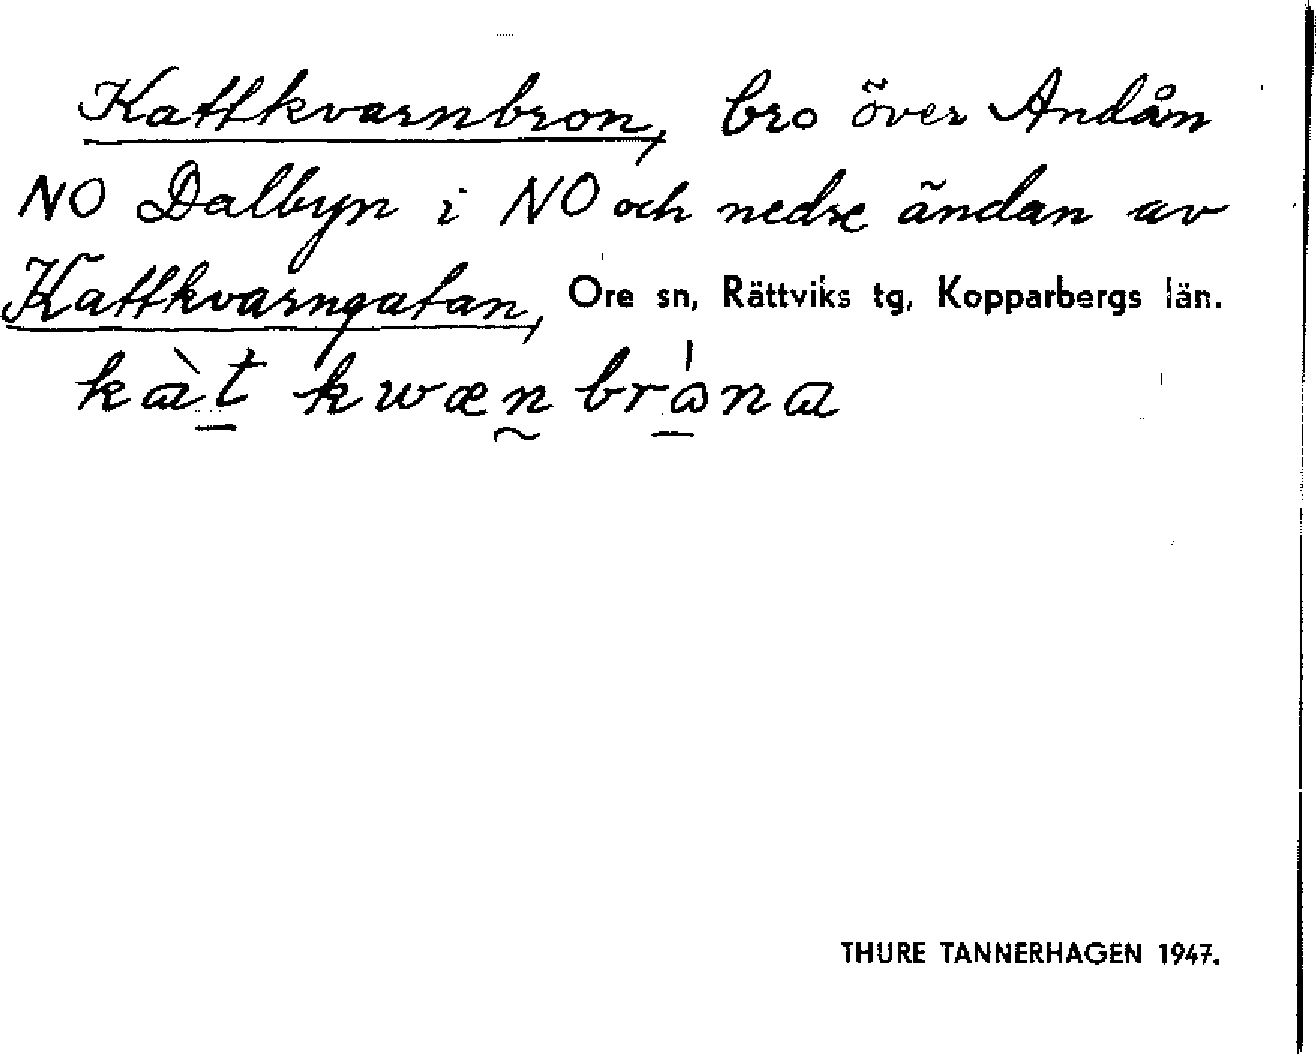 Kattkvarnbron, bro över Andån
NO Dalbyn i NO och nedre ändan av
Kattkvarngatan, Ore sn, Rättviks tg, Kopparbergs län.
kὰt kwæn brɷ́na
THURE TANNERHAGEN 1947.